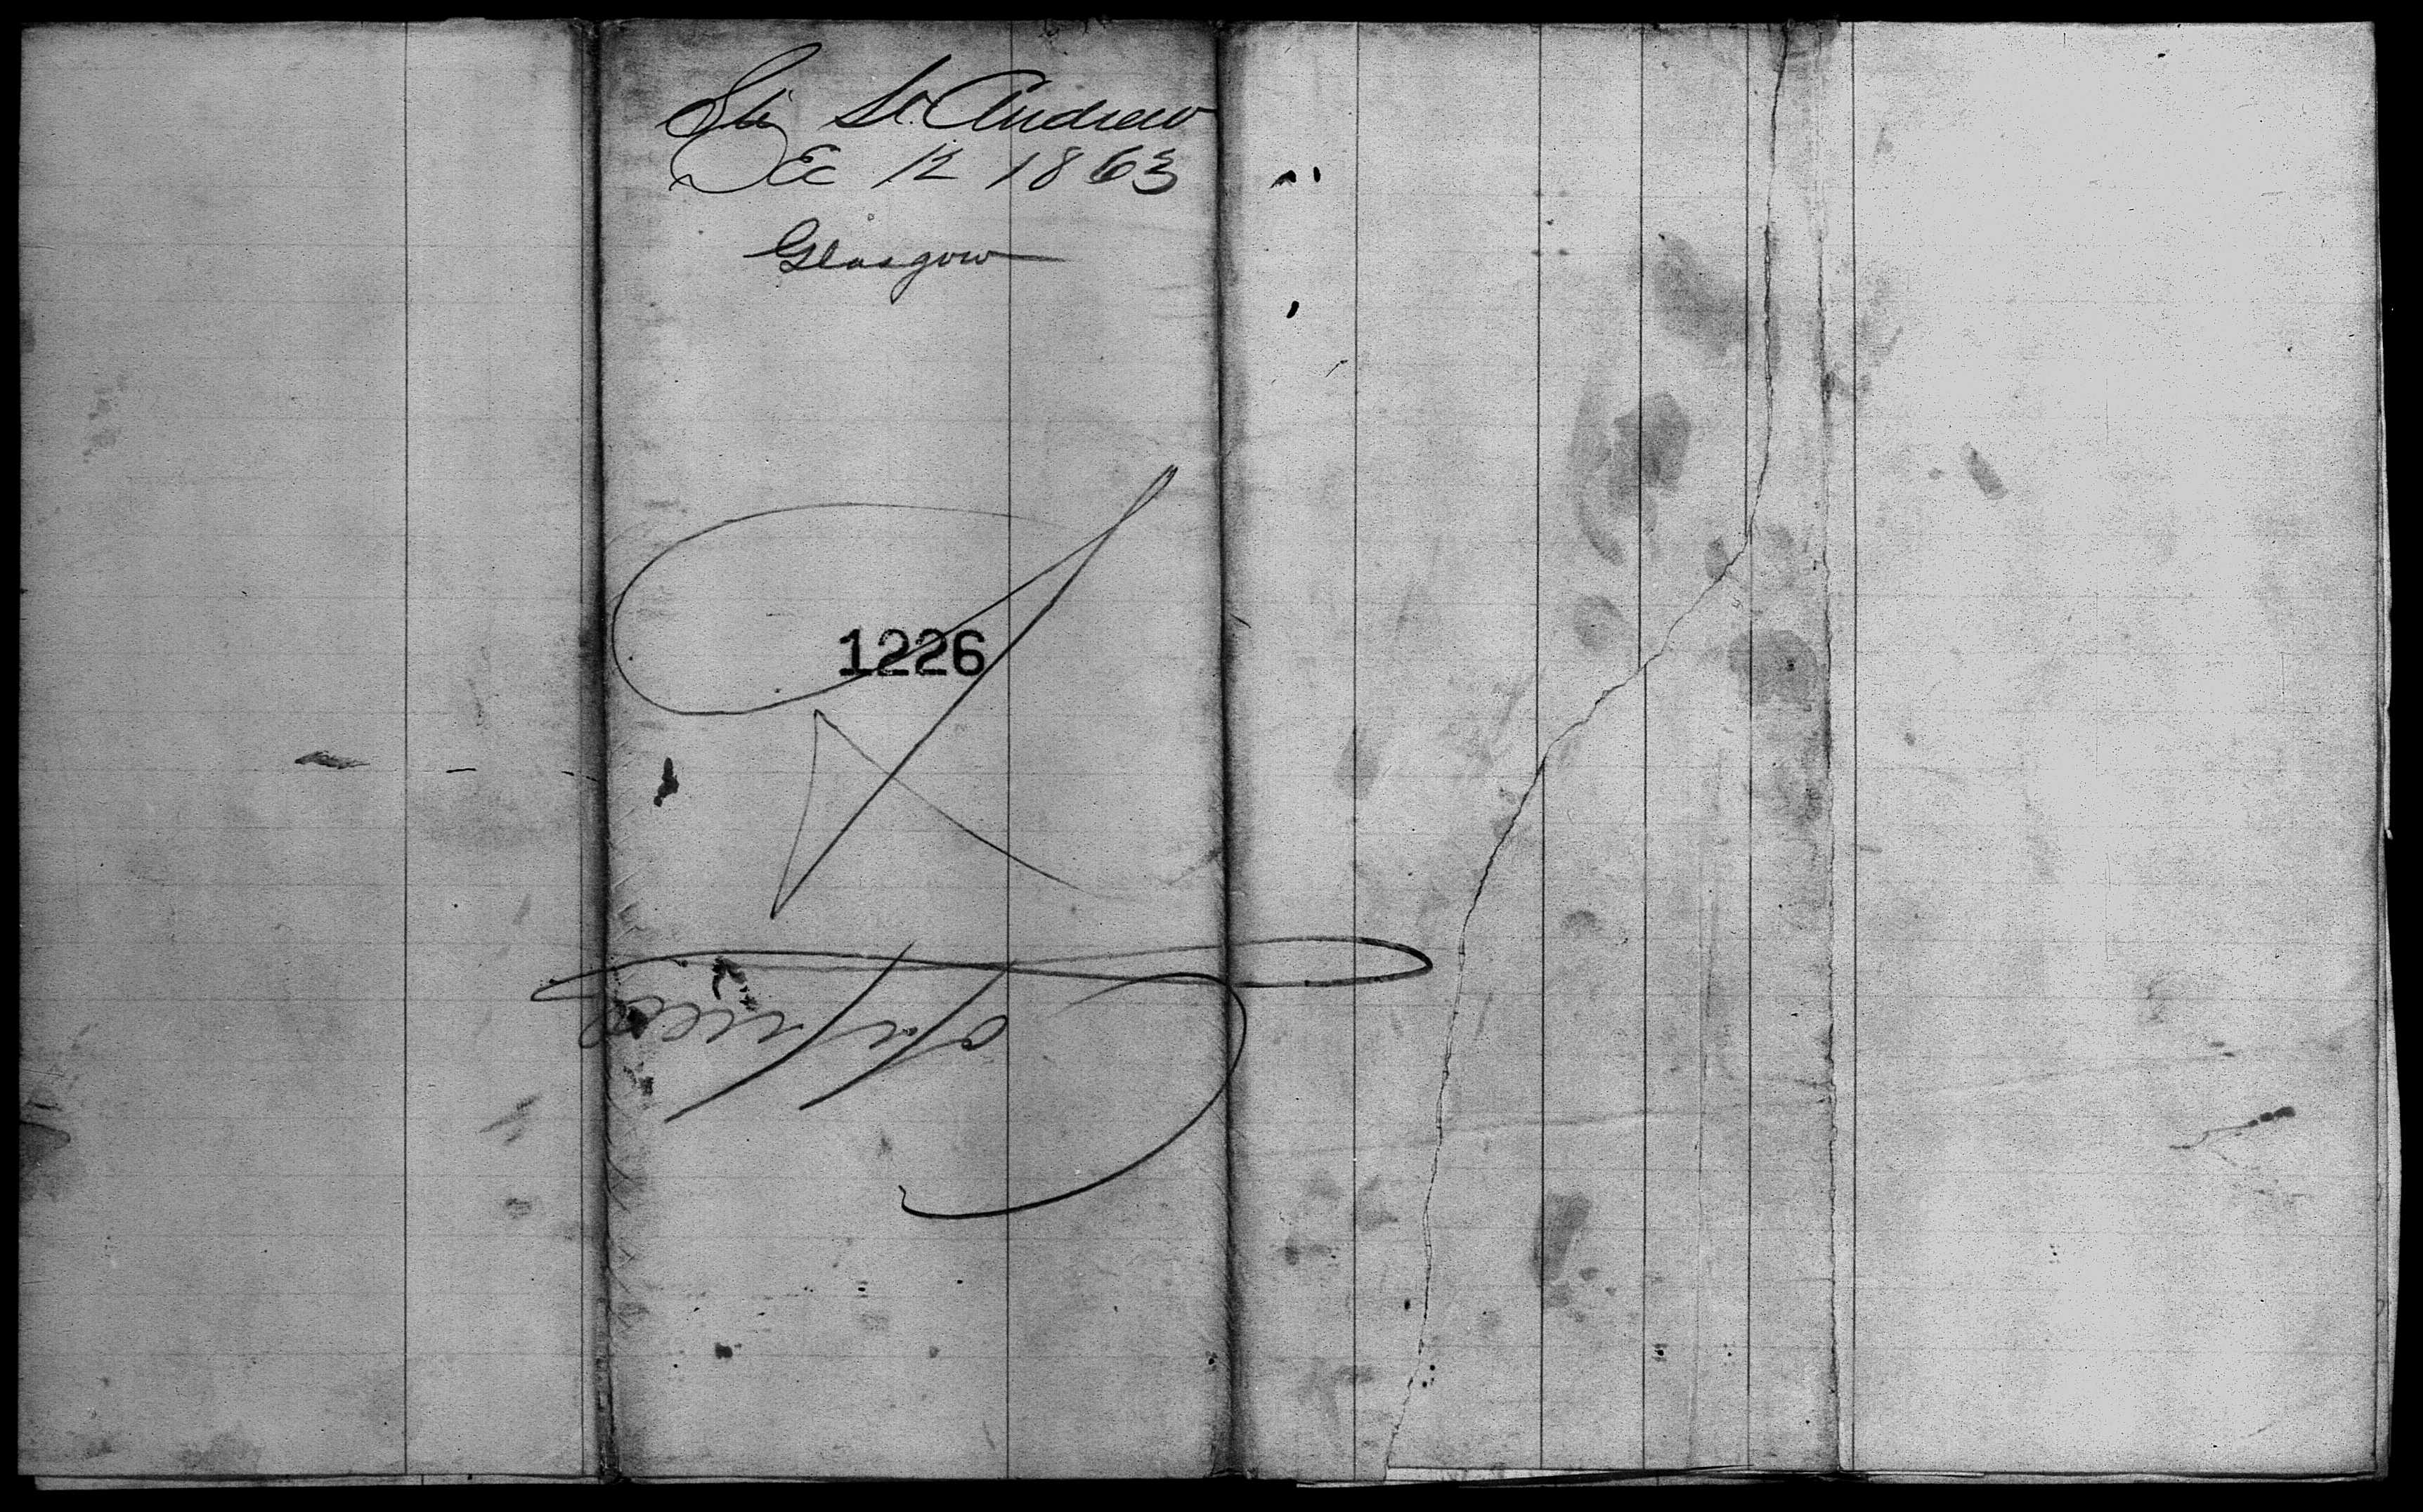 Str St. Andrew
Dec 12 1863
Glasgow
1226